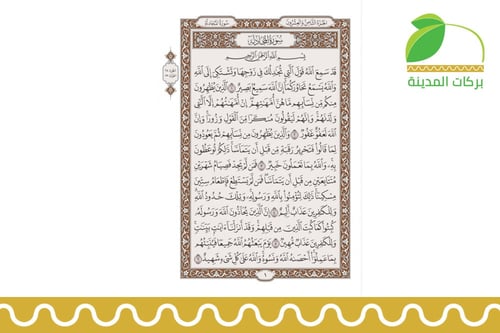 الجزء الثامن والعشرون
سورة المجادلة
سورة المجادلة
بسم الله الرحمن الرحيم
قد سمع الله قول التي تجادلك في زوجها وتشتكي إلى الله
والله يسمع تحاوركما إن الله سميع بصير ١ الذين يظاهرون
منكم من نسائهم ما هن أمهاتهم إن أمهاتهم إلا الئي
ولدنهم وإنهم ليقولون منكرا من القول وزورا وإن
الله لعفو غفور ٢ والذين يظاهرون من نسائهم ثم يعودون
لما قالوا فتحرير رقبة من قبل أن يتماسا ذلكم توعظون
به والله بما تعملون خبير ٣ فمن لم يجد فصيام شهرين
متتابعين من قبل أن يتماسا فمن لم يستطع فإطعام ستين
مسكينا ذلك لتؤمنوا بالله ورسوله وتلك حدود الله
وللكافرين عذاب أليم ٤ إن الذين يحادون الله ورسوله
كبتوا كما كبت الذين من قبلهم وقد أنزلنا آيات بينات
وللكافرين عذاب مهين ٥ يوم يبعثهم الله جميعا فينبئهم
بما عملوا أحصاه الله ونسوه والله على كل شيء شهيد ٦
١
بركات المدينة